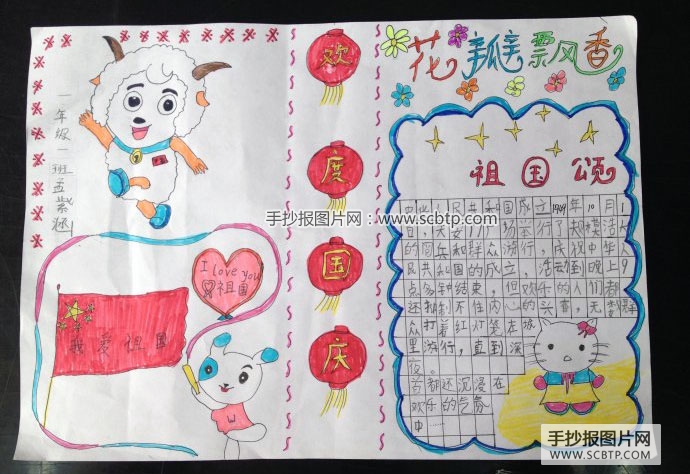 花瓣飘风香
欢
度
国
庆
一年级一班孟紫
I love you
祖国
我爱祖国
祖国颂
中华人民共和国成立1949年10月1
日,天安门广场举行了规模浩大
的阅兵和群众游行,庆祝中华
民共和国的成立,
到晚上9
点多钟结束,但欢乐的人们都
还抑制不住内心的兴奋,无数群
众打着红灯笼在
里游行,直到深
夜。
首都还沉浸在
欢乐的气氛
中……
手抄报图片网:www.scbtp.com
手抄报图片网
SCBTP.COM